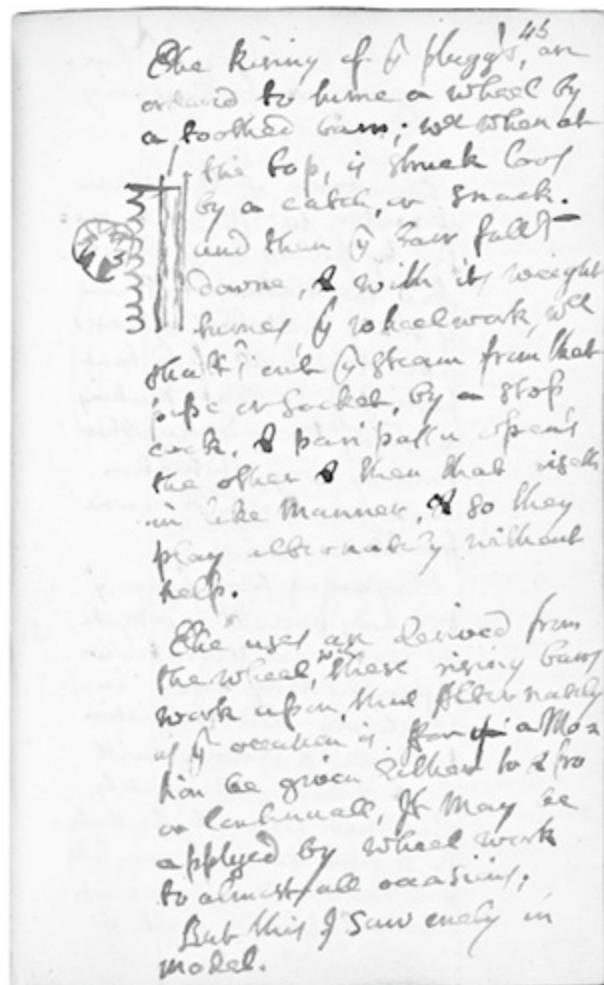 45
The Rising of yͤ pluggs, are
ordained to turne a wheel by
a toothed barr; wᶜʰ when at
the top, is struck loos
by a catch, or snack.
and then yͤ barr falls
downe, & with its weight
turnes, yͤ wheelwork, wᶜʰ
shutts out yͤ steam from that
pipe or socket, by a stop
cock, & pari passu opens
the other & then that riseth
in like manner, & so they
play alternately without
help.
The uses are derived from
the wheel, wᶜʰ these rising barrs
work upon, thus Alternately
as yͤ occasion is. For if a Mo=
tion be given either to & fro
or Continuall, It may be
applyed by wheel work
to almost all occasions,
But this I saw onely in
model.